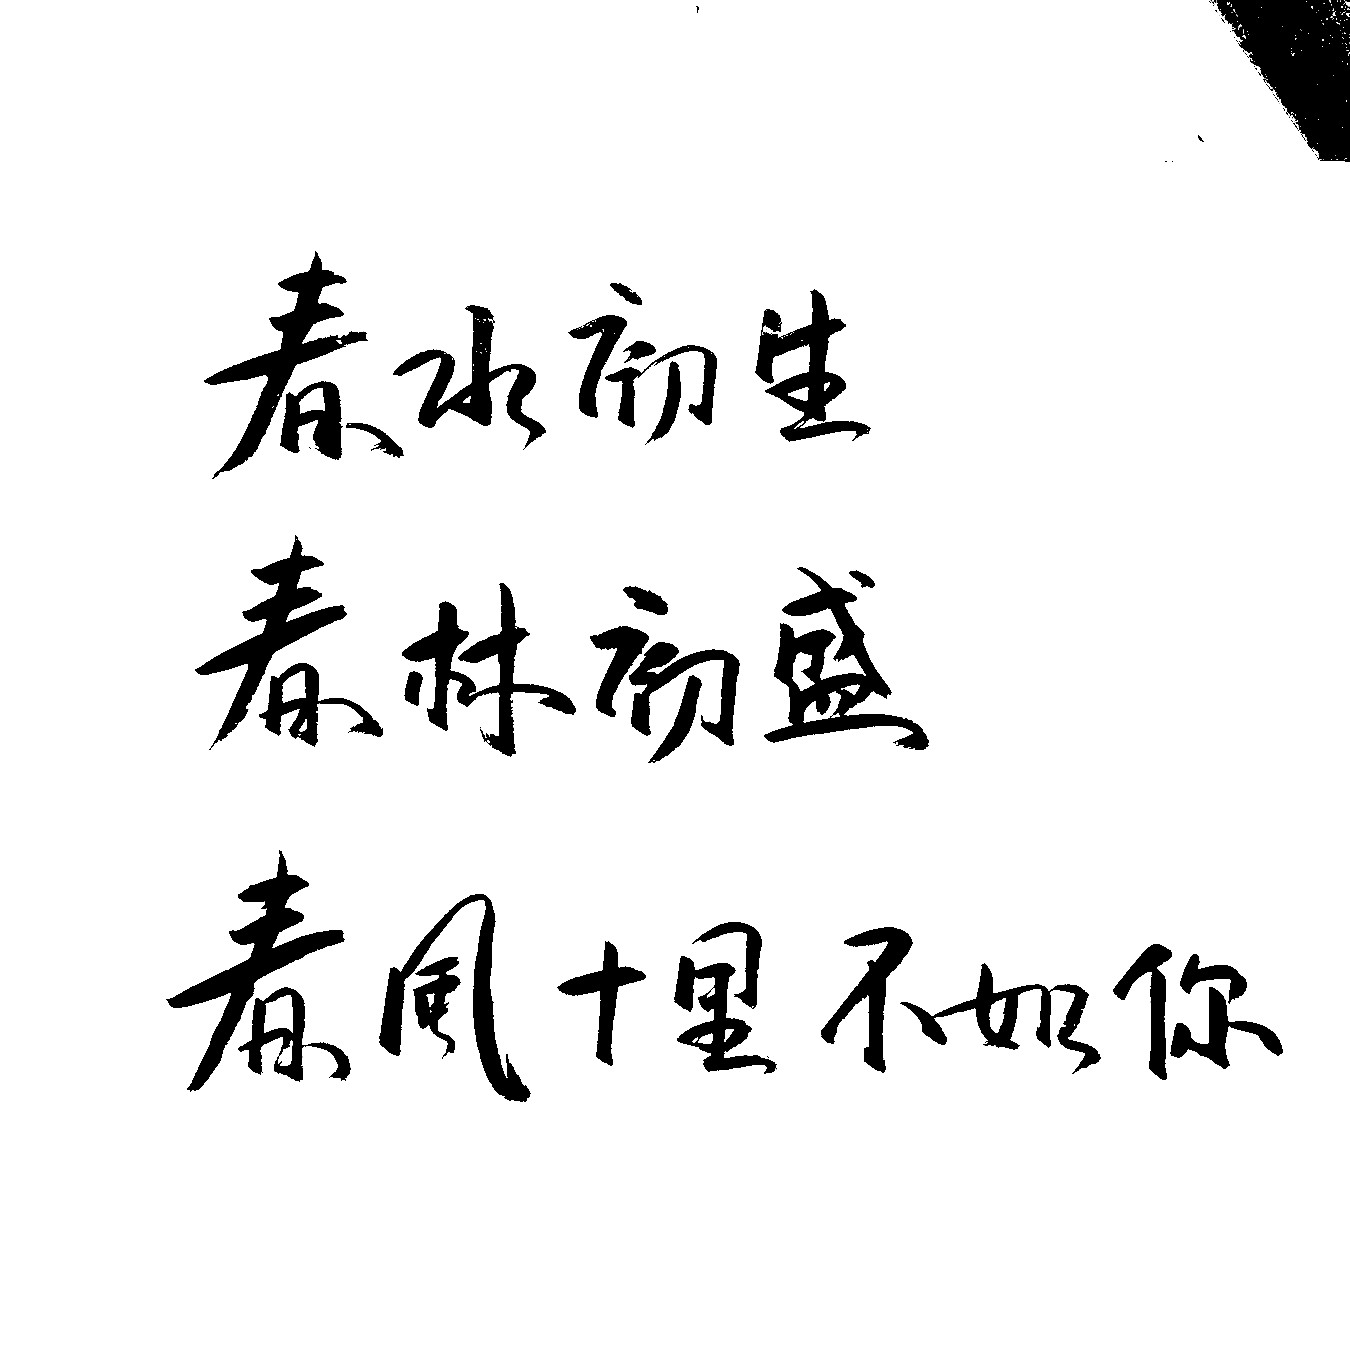 春水初生
春林初盛
春風十里不如你